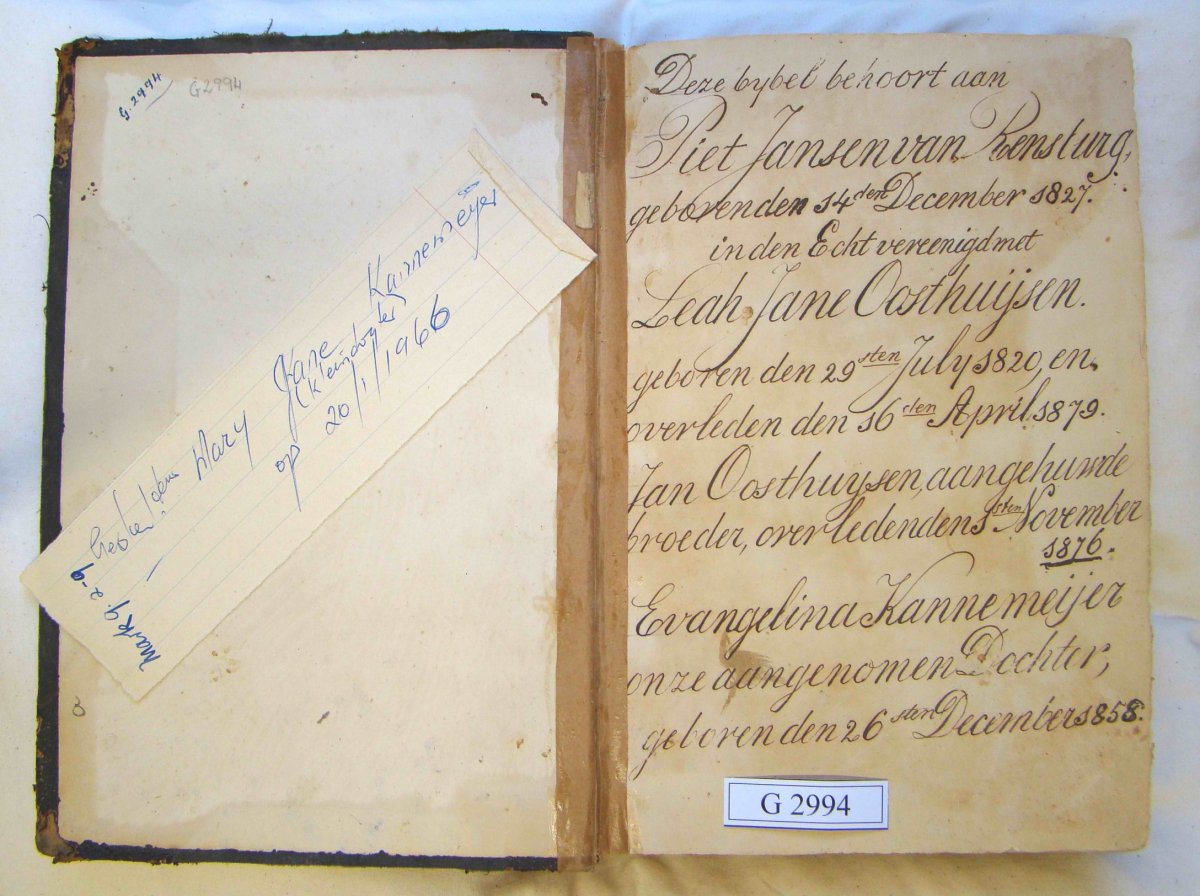 G.2994
G2994
Mary Jane Kannemeyer
(kleindogter
op 20/1/1966
Mark 9.2-9
Deze bybel behoort aan
Piet Jansen van Rensburg,
geboren den 14den December 1827.
in den Echt vereenigd met
Leah Jane Oosthuijsen.
geboren den 29sten July 1820, en
overleden den 16den April 1879.
Jan Oosthuysen, aangehuwde
broeder, overleden den 1sten November
1876.
Evangelina Kannemeijer
onze aangenomen Dochter,
geboren den 26sten December 1858.
G 2994